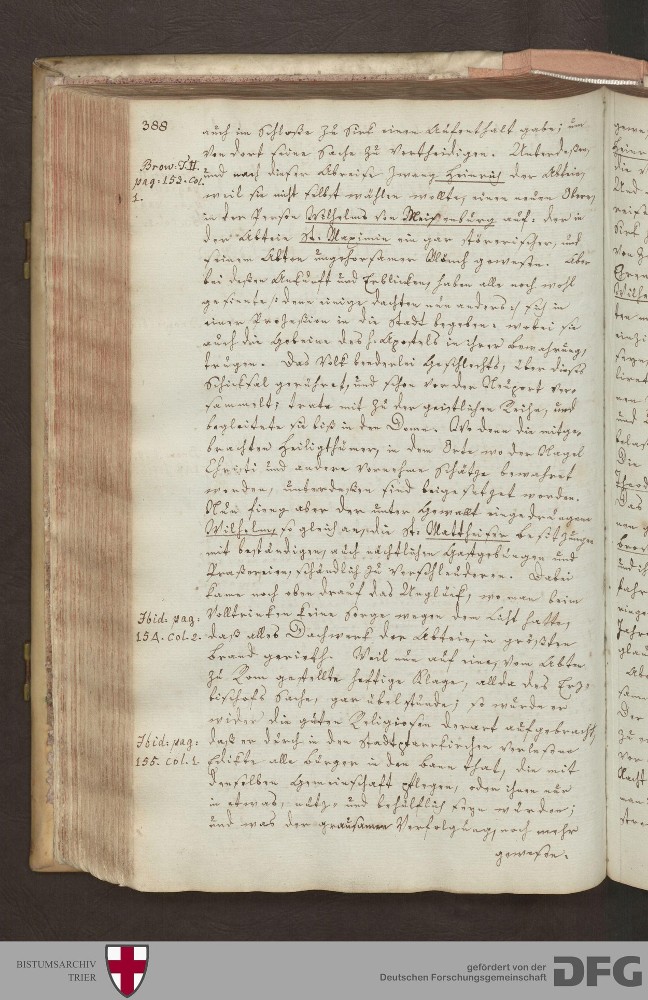 388
auch im Schloße zu Sirk einen Aufenthalt gabe; um
von dort seine Sache zu vertheidigen. Unterdeßen,
Brow: T. II.
pag: 153. col.
1.
und nach dieser Abreise zwang Heinrich der Abtei,
weil sie nicht selbst wählen wollte, einen neuen Obern,
in der Person Wilhelms von Meisenburg auf: der in
der Abtei St: Maximin ein gar störrischer, und
seinem Abten ungehorsamer Mönch gewesen. Aber
bei deßen Ankunft und Erblicken, haben alle noch wohl
gesinnte /: denn einige dachten nun anders :/ sich in
einer Prozeßion in die Stadt begeben: wobei sie
auch die Gebeine des h: Apostels in ihrer Bewahrung,
trugen. Das Volk beederlei Geschlechts, über dieses
Schicksal gerühret, und schon vor der Neuport ver-
sammelt; trate mit zu der geistlichen Reihe, und
begleitete sie biß in den Dome. Wo denn die mitge-
brachten Heiligthümer, in dem Orte wo der Nagel
Christi und andere vornehme Schätze bewahret
werden, unterdeßen sind beigesetzet worden.
Nun fieng aber der unter Gewalt eingedrungene
Wilhelm, so gleich an, die St: Mattheiser besitzungen
mit beständigen, auch nächtlichen Gastgebungen und
Praßereien, schändlich zu verschleuderen. Dabei
kame noch oben drauf das Unglück, wo man beim
Ibid: pag:
154. col. 2.
Volltrinken keine Sorge wegen dem Licht hatte,
daß alles Dachwerk der Abtei, in größten
brand gerieth. Weil nun auf eine, vom Abten
zu Rom gestellte heftige Klage, allda des Erz-
bischofs Sache, gar übel stunde; so wurde er
wider die guten Religiosen derart aufgebracht,
Ibid: pag:
155. col. 1.
daß er durch in den Stadtpfarrkirchen verlesene
Edikte alle Bürger in den bann that, die mit
denselben Gemeinschaft pflegen, oder ihnen nur
in etwas, nütz- und behülflich seyn würden;
und was der grausamen Verfolgung, noch mehr
gewesen.
BISTUMSARCHIV
TRIER
gefördert von der
Deutschen Forschungsgemeinschaft
DFG